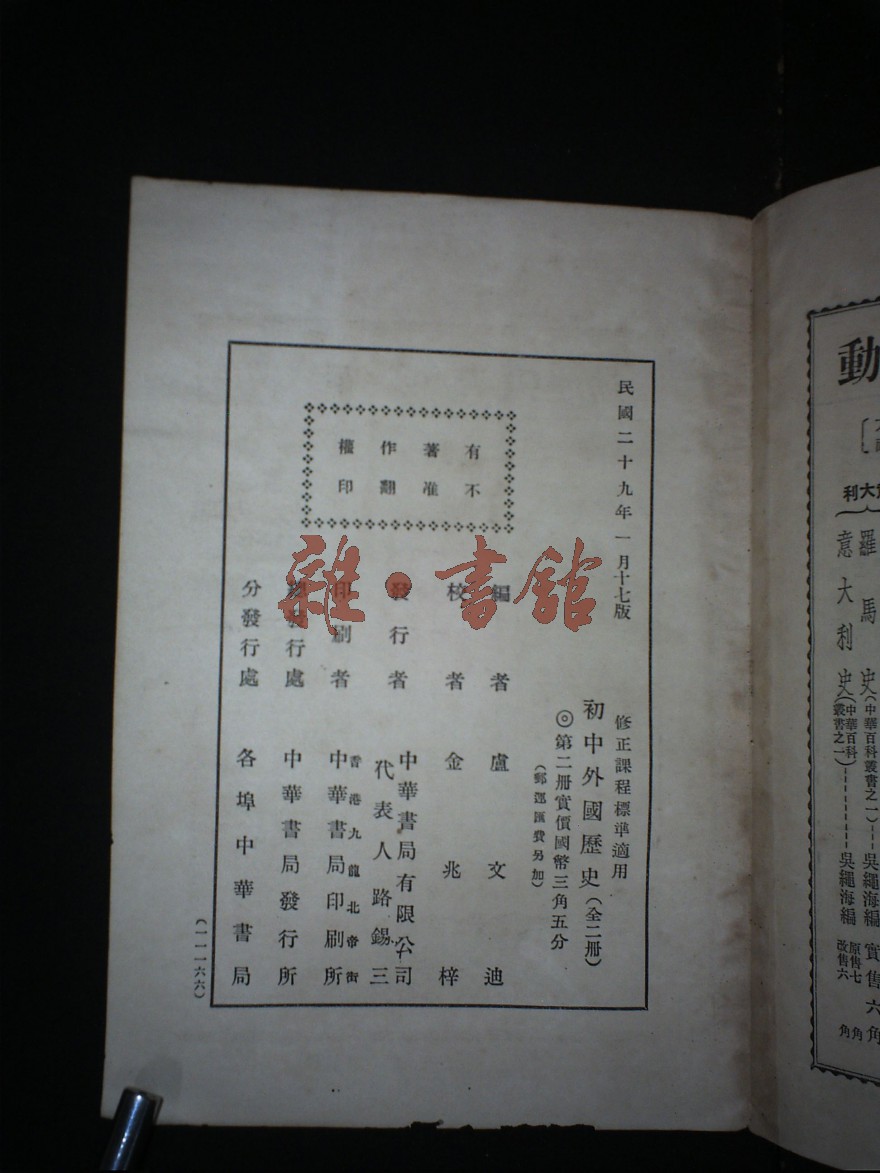 民國二十九年一月十七版
修正課程標準適用
初中外國歷史（全二冊）
◎第二冊實價國幣三角五分
（郵運匯費另加）
有不
著准
作翻
權印
編者 盧文迪
校者 金兆梓
發行者 中華書局有限公司
代表人路錫三
香港九龍北帝街
印刷者 中華書局印刷所
總發行處 中華書局發行所
分發行處 各埠中華書局
（一一一六六）
雜·書館
動
大利
羅馬史（中華百科叢書之一）吳繩海編 實售六角
意大利史（中華百科叢書之一）吳繩海編 原售七角 改售六角